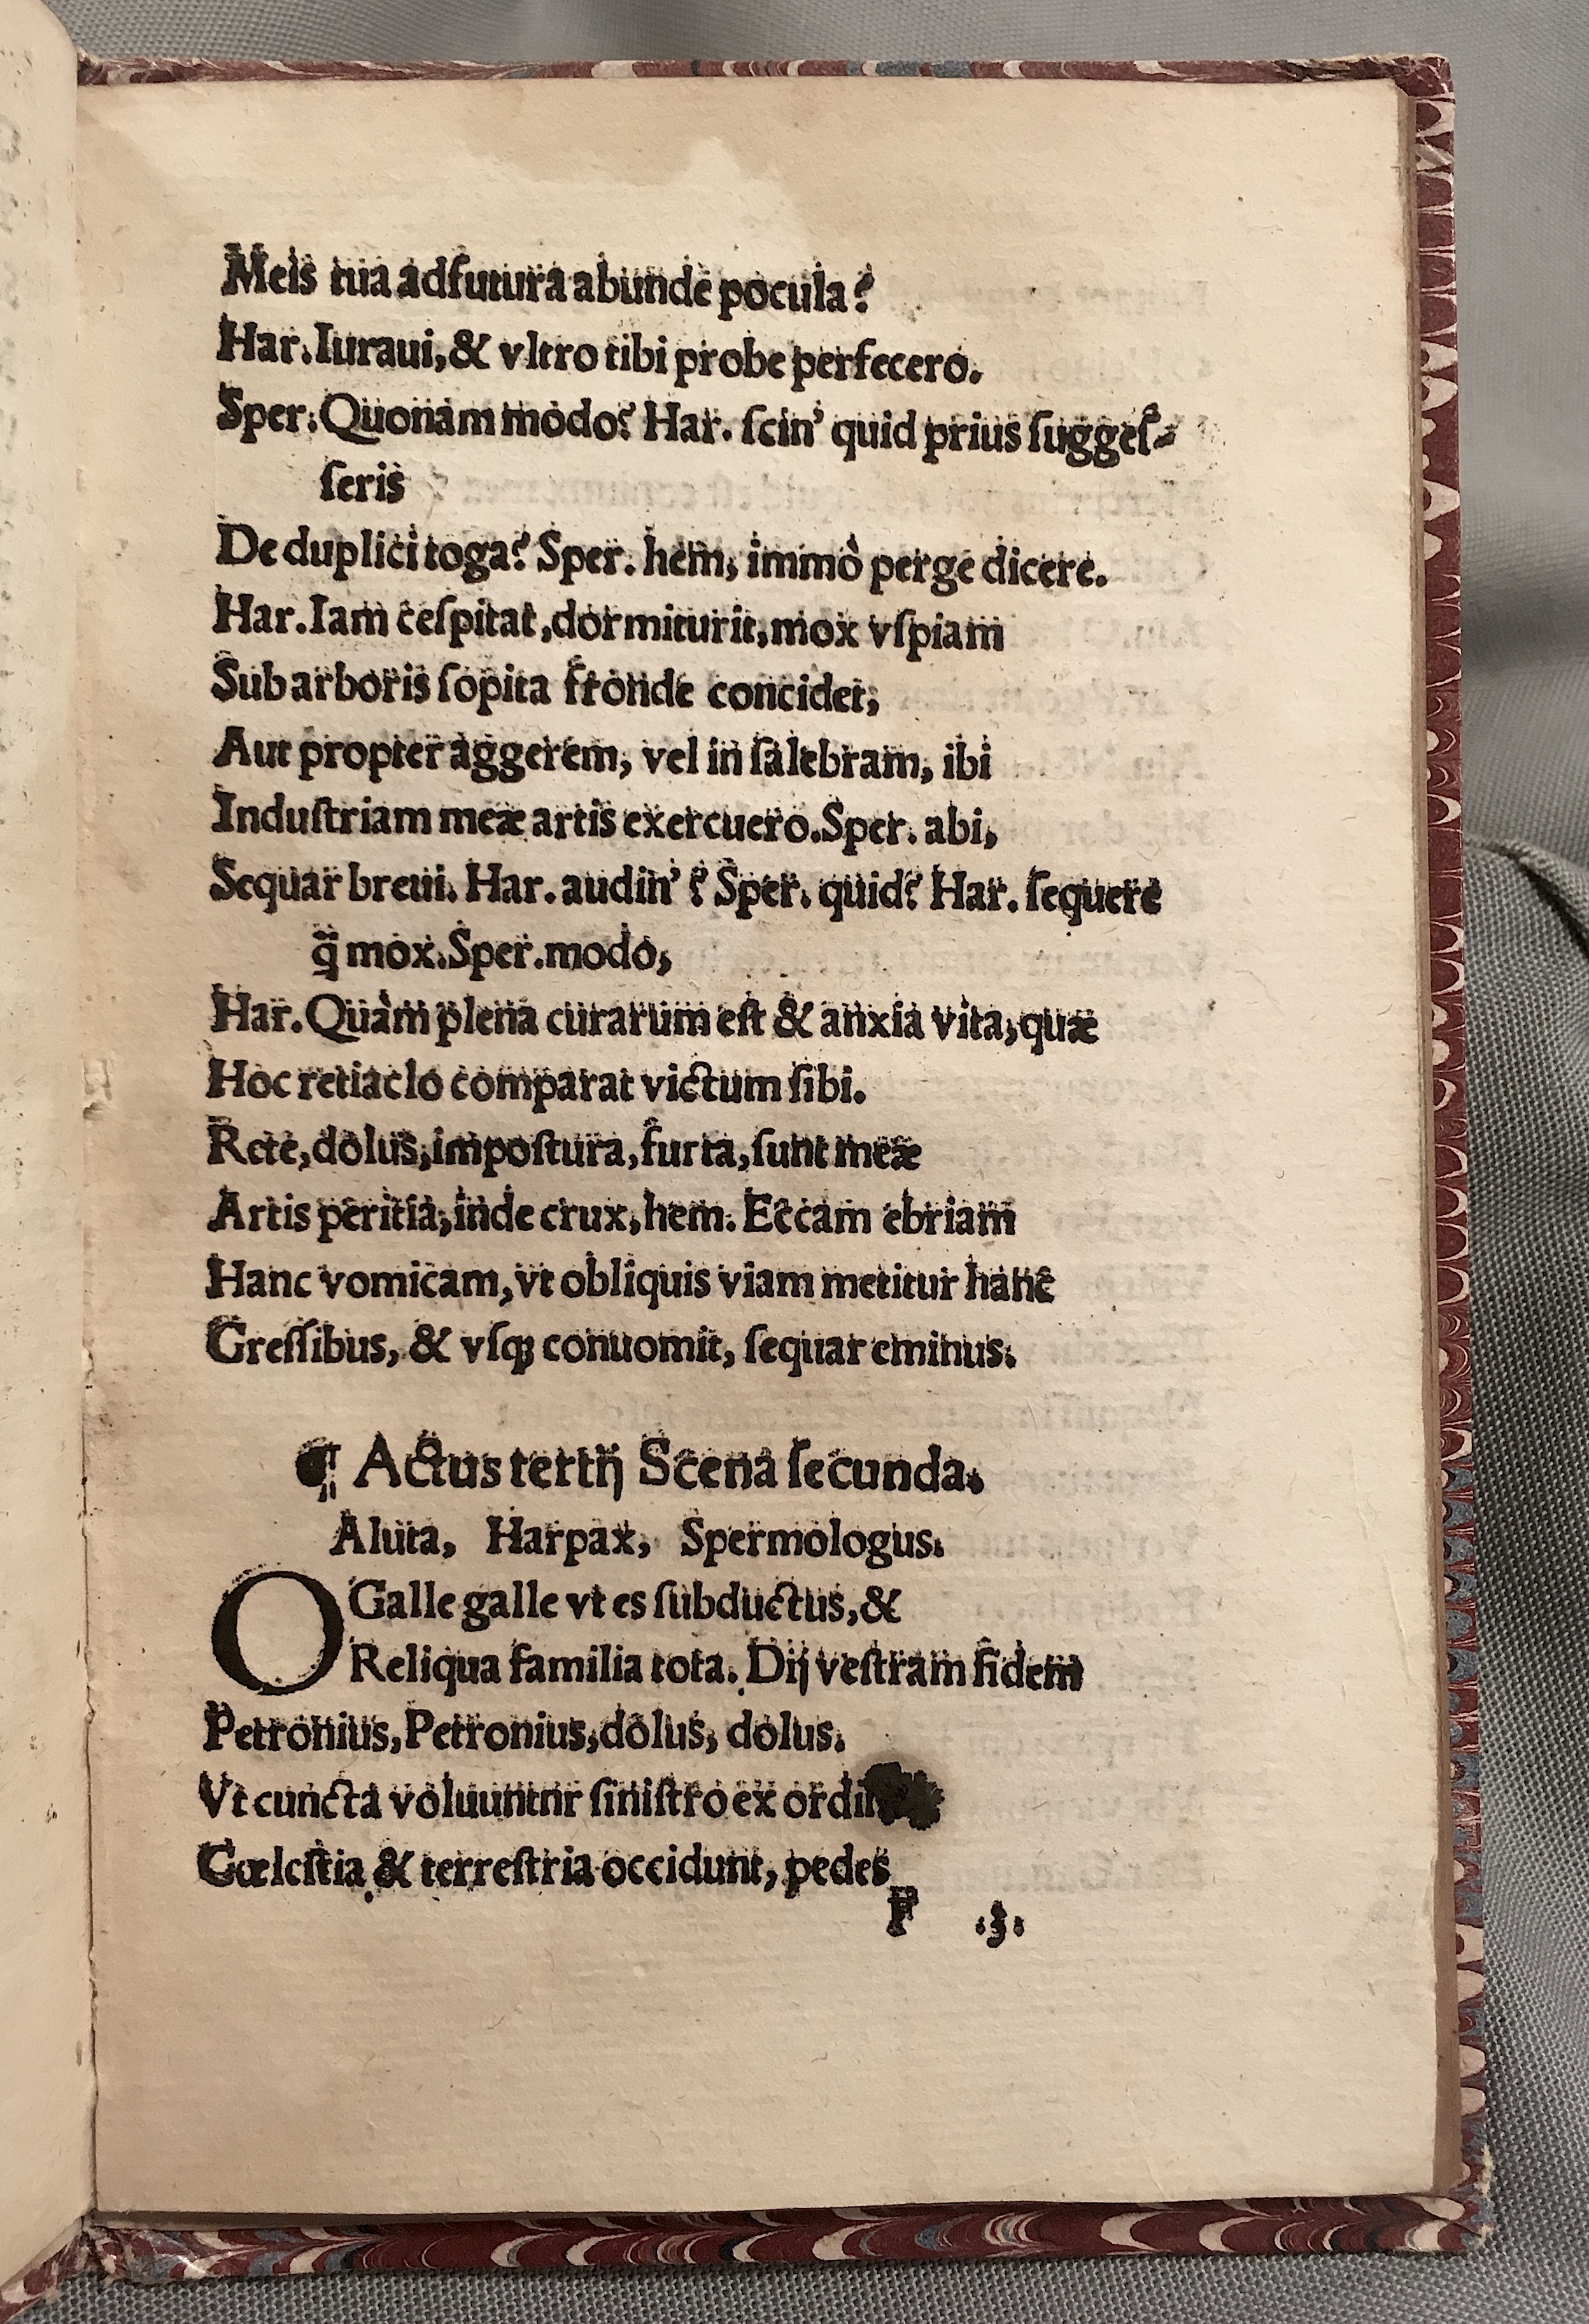 Meis tua adfutura abunde pocula?
Har. Iuraui, & vltro tibi probe perfecero.
Sper. Quonam modo? Har. ſcin' quid prius ſuggeſ-
ſeris
De duplici toga? Sper. hem, immò perge dicere.
Har. Iam ceſpitat, dormiturit, mox vſpiam
Sub arboris ſopita fronde concidet,
Aut propter aggerem, vel in ſalebram, ibi
Induſtriam meæ artis exercuero. Sper. abi,
Sequar breui. Har. audin'? Sper. quid? Har. ſequere
q̃ mox. Sper. modo,
Har. Quàm plena curarum eſt & anxia vita, quæ
Hoc retiaclo comparat victum ſibi.
Rete, dolus, impoſtura, furta, ſunt meæ
Artis peritia, inde crux, hem. Eccam ebriam
Hanc vomicam, vt obliquis viam metitur hanc
Greſſibus, & vſq; conuomit, ſequar eminus.
¶ Actus tertij Scena ſecunda.
Aluta, Harpax, Spermologus.
O Galle galle vt es ſubductus, &
Reliqua familia tota. Dij veſtram fidem
Petronius, Petronius, dolus, dolus.
Vt cuncta voluuntnr ſiniſtro ex
Cœleſtia & terreſtria occidunt, pedes
F .3.